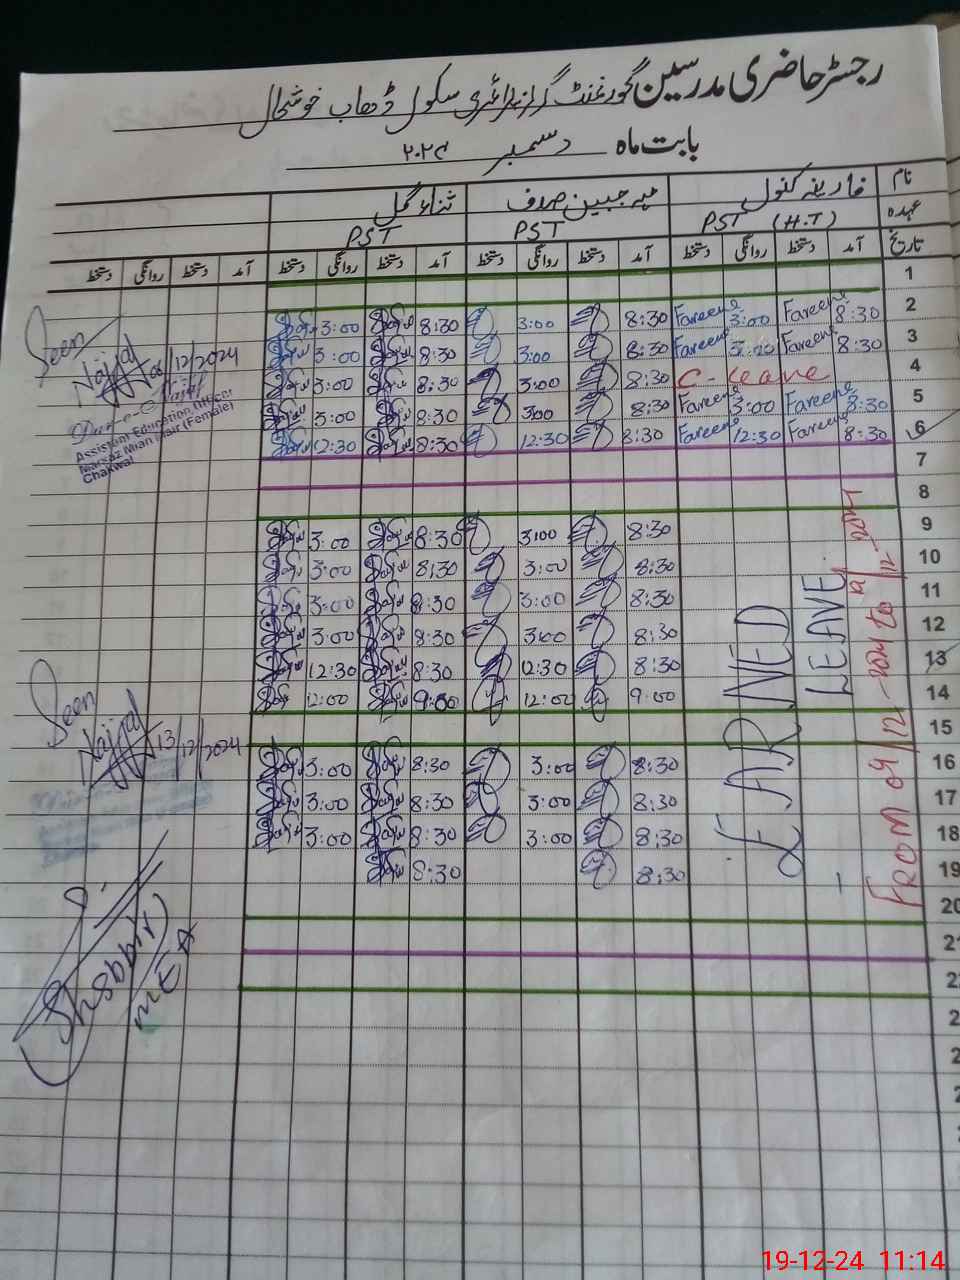 رجسٹر حاضری مدرسین گورنمنٹ گرلز پرائمری سکول ڈھاب خوشحال
بابت ماہ دسمبر ۲۰۲۴
نام فارینہ کنول مہ جبین ثناء گل
عہدہ PST (H.T) PST PST
تاریخ آمد دستخط روانگی دستخط آمد دستخط روانگی دستخط آمد دستخط روانگی دستخط آمد دستخط روانگی دستخط
1
2 8:30 Fareena 3:00 Fareena 8:30 3:00 8:30 3:00
3 8:30 Fareena 3:00 Fareena 8:30 3:00 8:30 3:00
4 C-Leave 8:30 3:00 8:30 3:00
5 8:30 Fareena 3:00 Fareena 8:30 3:00 8:30 3:00
6 8:30 Fareena 12:30 Fareena 8:30 12:30 8:30 12:30
7
8
9 8:30 3:00 8:30 3:00
10 8:30 3:00 8:30 3:00
11 8:30 3:00 8:30 3:00
12 8:30 3:00 8:30 3:00
13 8:30 12:30 8:30 12:30
14 9:00 12:00 9:00 12:00
15
16 8:30 3:00 8:30 3:00
17 8:30 3:00 8:30 3:00
18 8:30 3:00 8:30 3:00
19 8:30 8:30
20
21
22
EARNED
LEAVE
FROM 09/12-2024 to 19/12-2024
Seen
06/12/2024
Assistant Education Officer
Markaz Mian Mair (Female)
Chakwal
Seen
13/12/2024
Shabbir
MEA
19-12-24 11:14